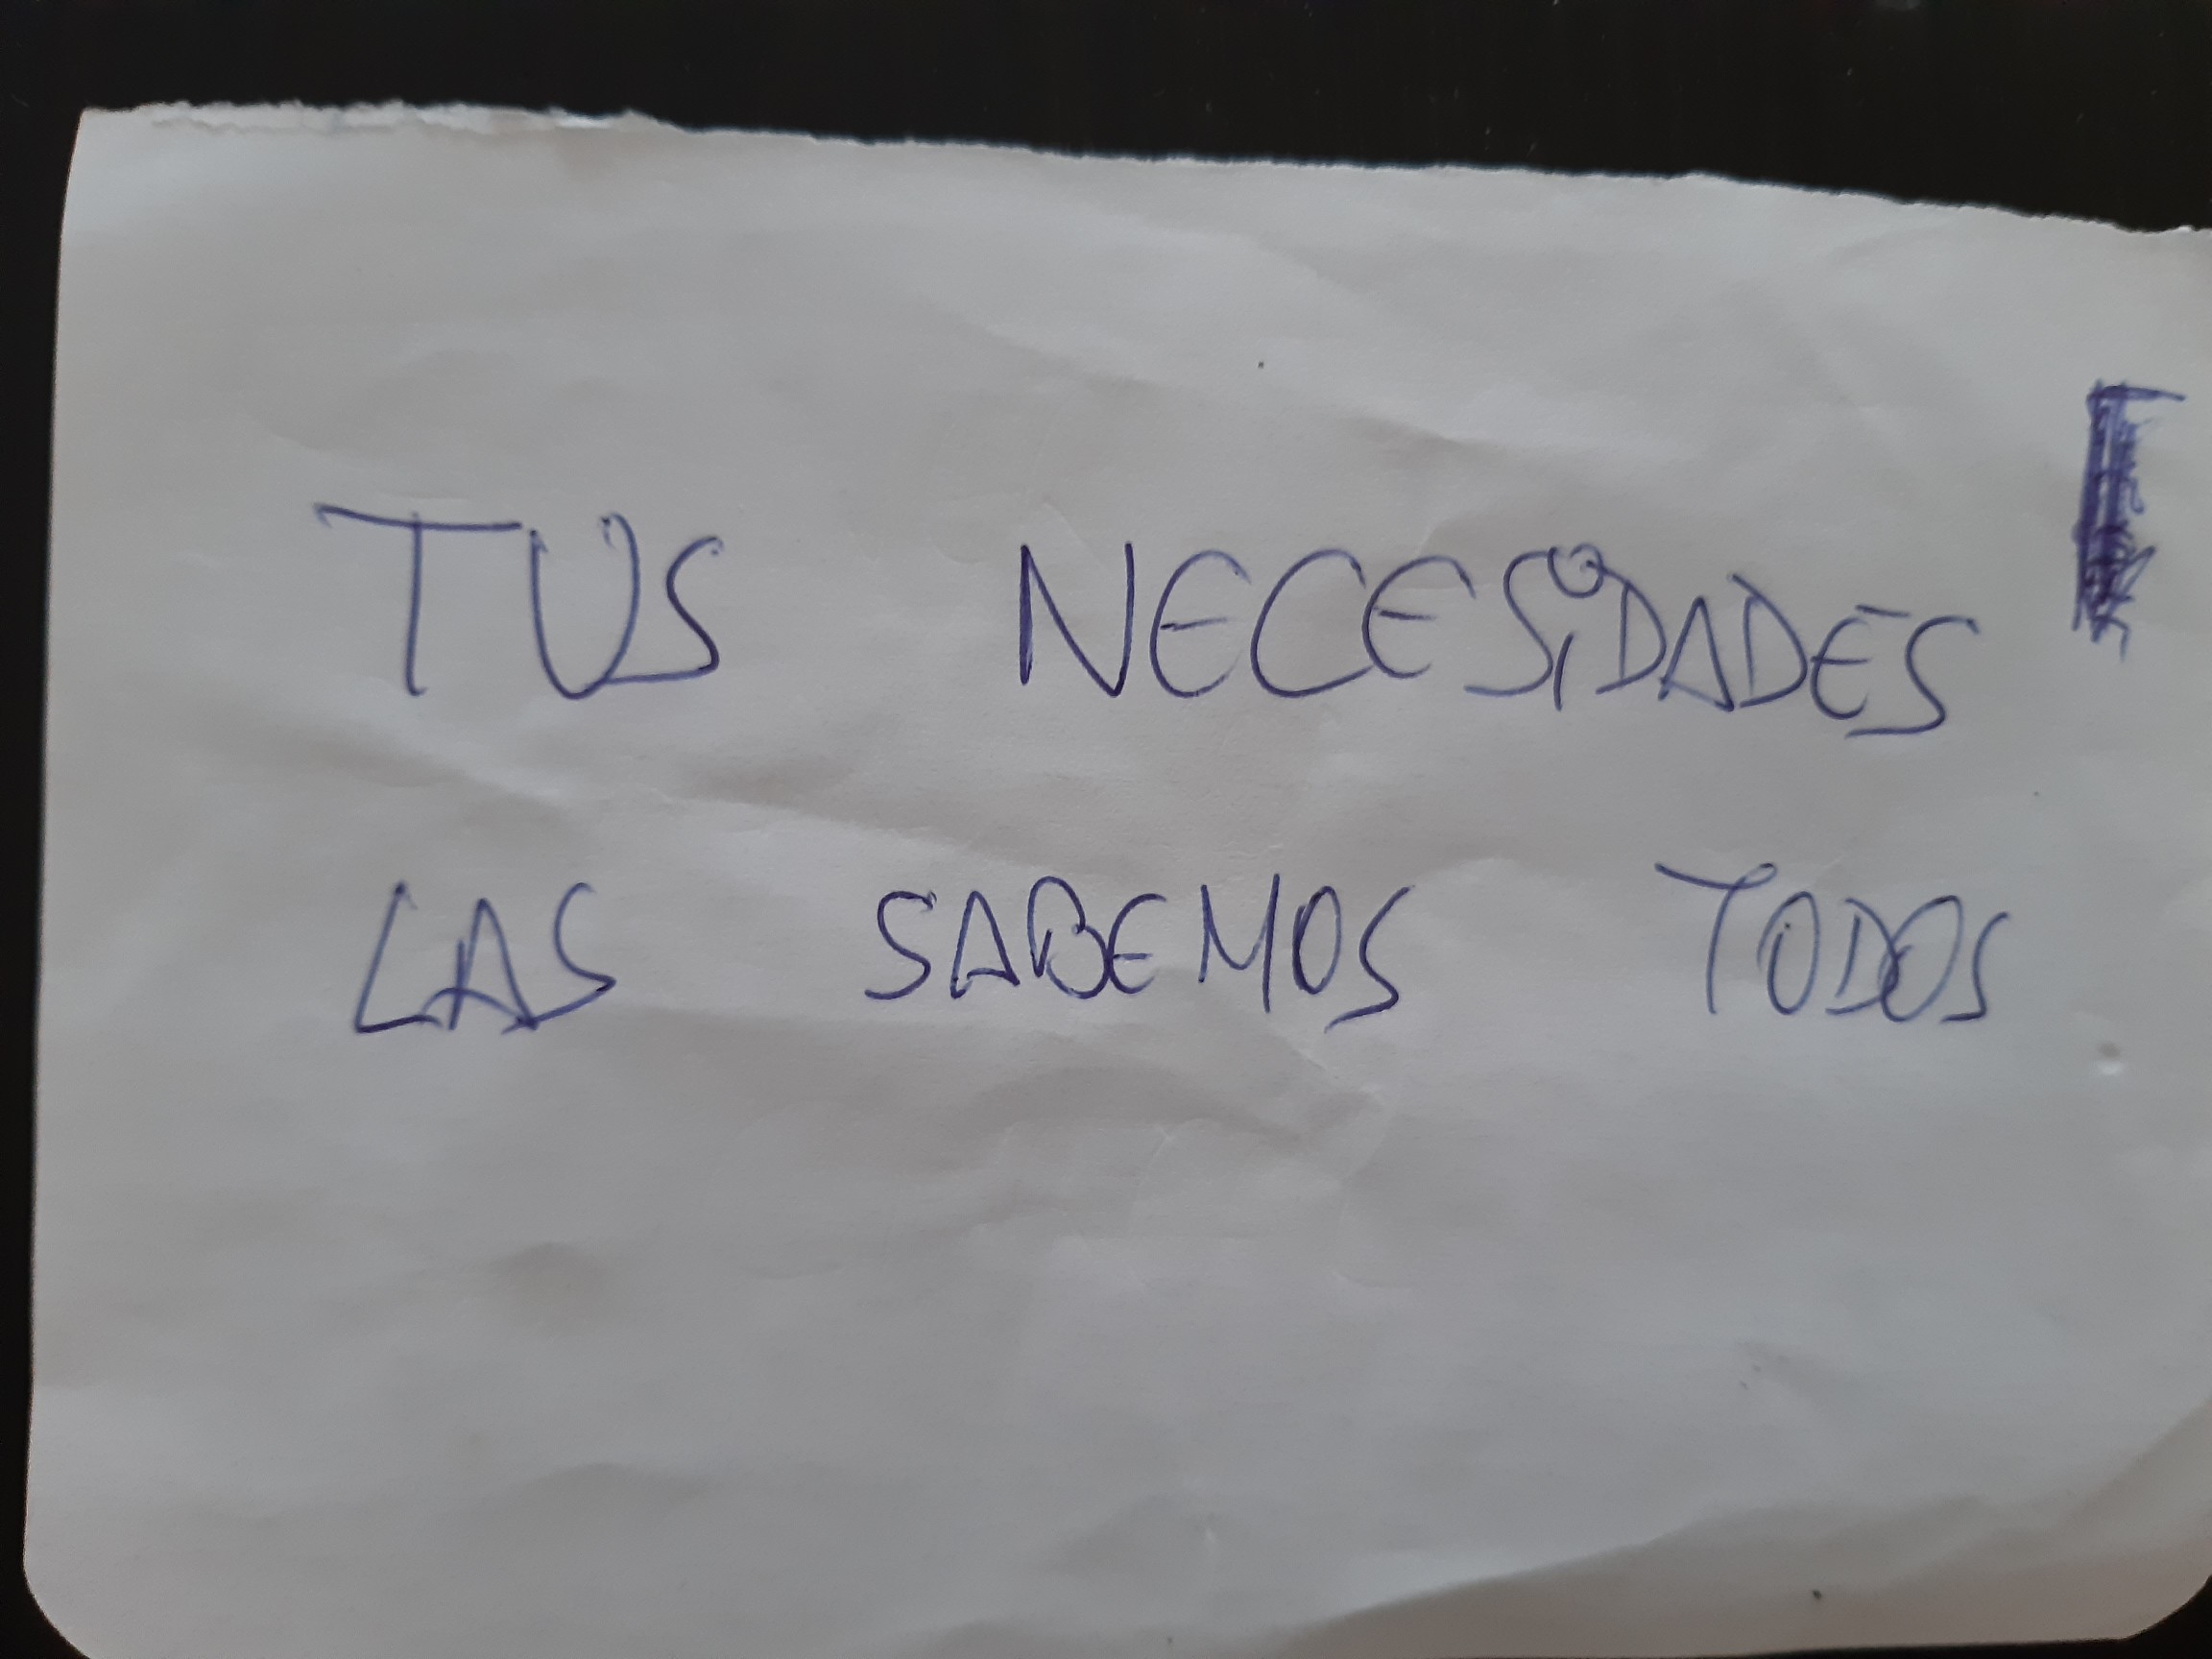 TUS NECESiDADES
LAS SABEMOS TODOS